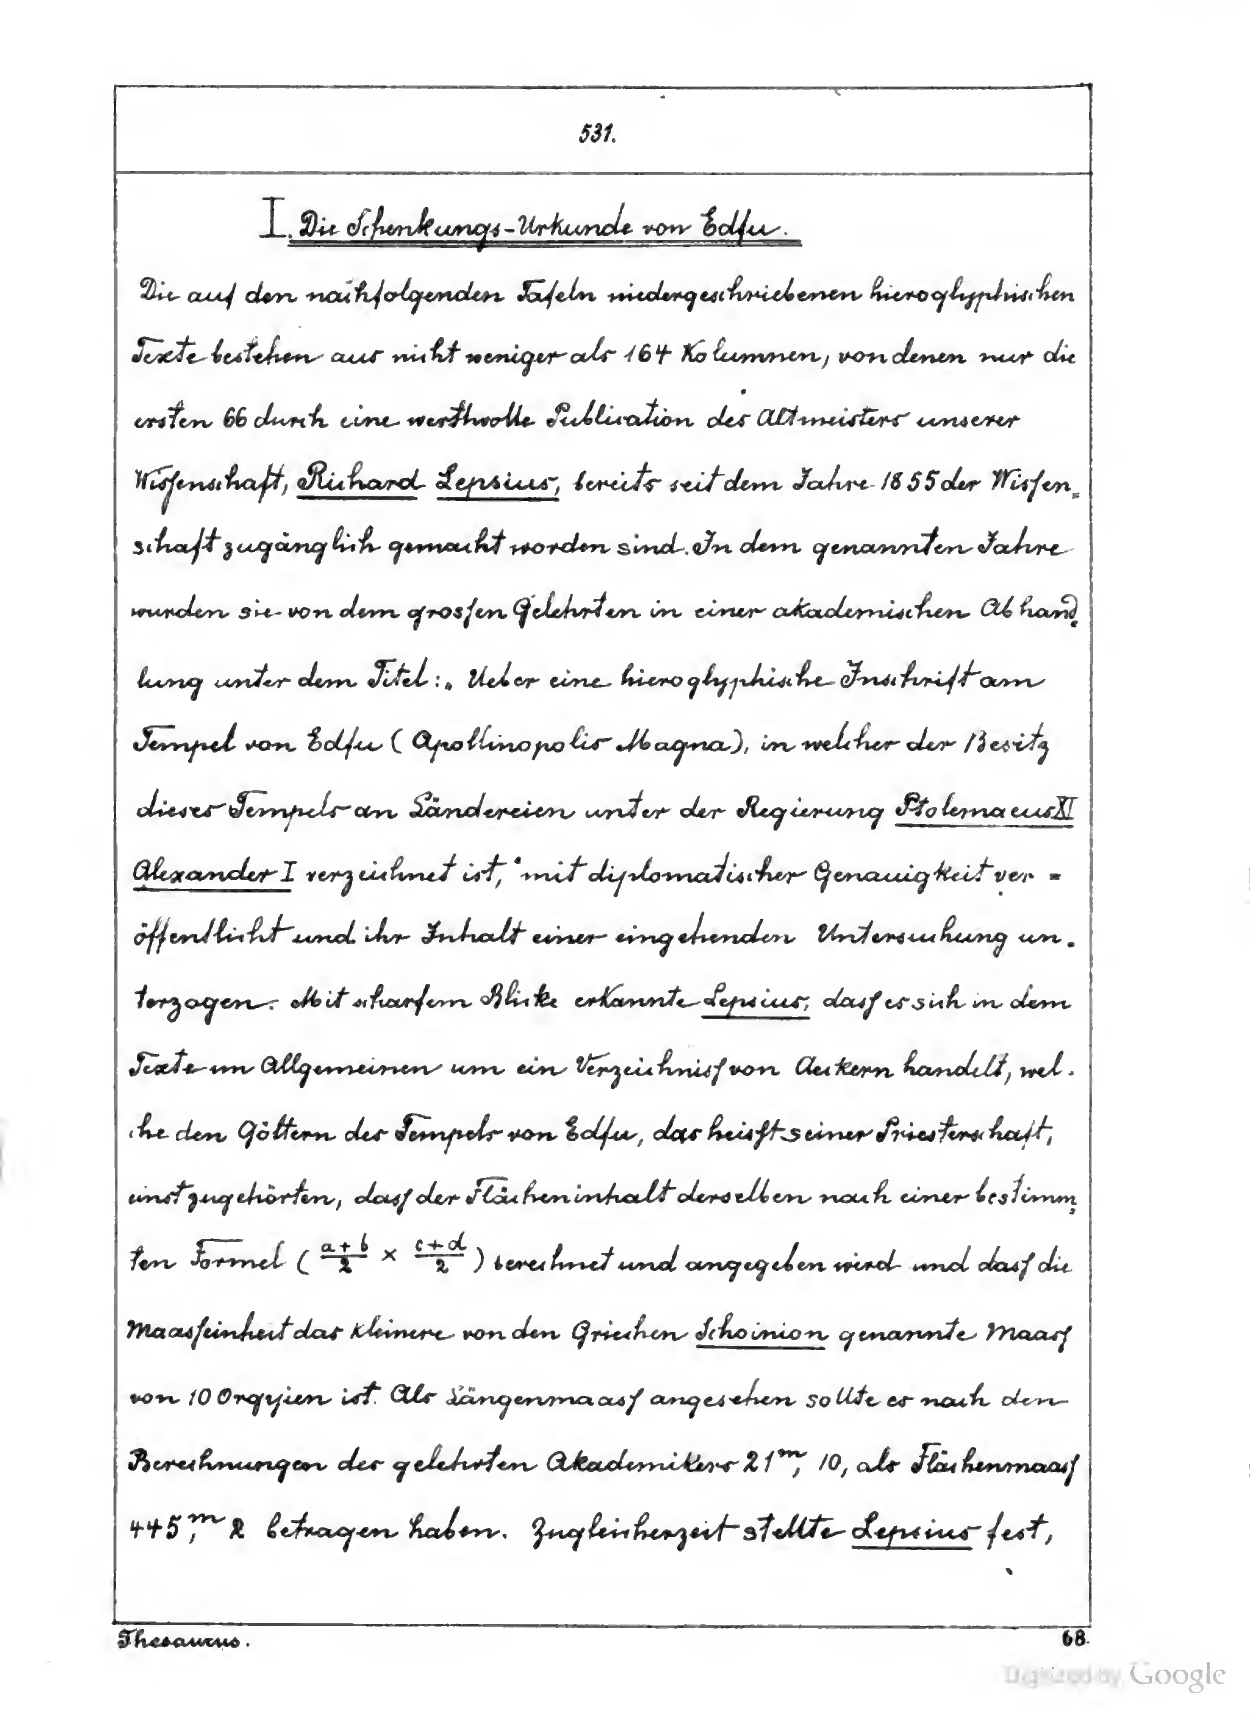 531.
I. Die Schenkungs-Urkunde von Edfu.
Die auf den nachfolgenden Tafeln niedergeschriebenen hieroglyphischen
Texte bestehen aus nicht weniger als 164 Kolumnen, von denen nur die
ersten 66 durch eine werthvolle Publication des Altmeisters unserer
Wissenschaft, Richard Lepsius, bereits seit dem Jahre 1855 der Wissen-
schaft zugänglich gemacht worden sind. In dem genannten Jahre
wurden sie von dem grossen Gelehrten in einer akademischen Abhand-
lung unter dem Titel: „Ueber eine hieroglyphische Inschrift am
Tempel von Edfu (Apollinopolis Magna), in welcher der Besitz
dieses Tempels an Ländereien unter der Regierung Ptolemaeus XI
Alexander I verzeichnet ist," mit diplomatischer Genauigkeit ver=
öffentlicht und ihr Inhalt einer eingehenden Untersuchung un-
terzogen. Mit scharfem Blicke erkannte Lepsius, dass es sich in dem
Texte im Allgemeinen um ein Verzeichniss von Aeckern handelt, wel-
che den Göttern des Tempels von Edfu, das heisst seiner Priesterschaft,
einst zugehörten, dass der Flächeninhalt derselben nach einer bestimm-
ten Formel ( a+b/2 × c+d/2 ) berechnet und angegeben wird und dass die
Maasseinheit das kleinere von den Griechen Schoinion genannte Maass
von 10 Orgyien ist. Als Längenmaass angesehen sollte es nach den
Berechnungen des gelehrten Akademikers 21ᵐ, 10, als Flächenmaass
445,ᵐ 2 betragen haben. Zugleicherzeit stellte Lepsius fest,
Thesaurus.
68.
Digitized by Google